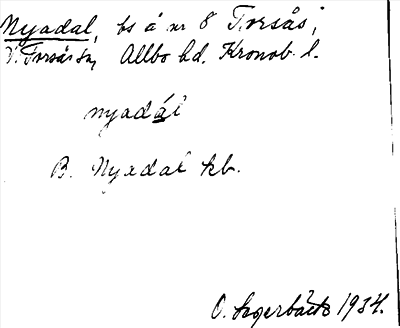 Nyadal, hs å nr 8 Torsås;
V. Torsås sn, Allbo hd. Kronob. l.
nyadál
B. Nyadal kb.
O. Segerbäck 1934.